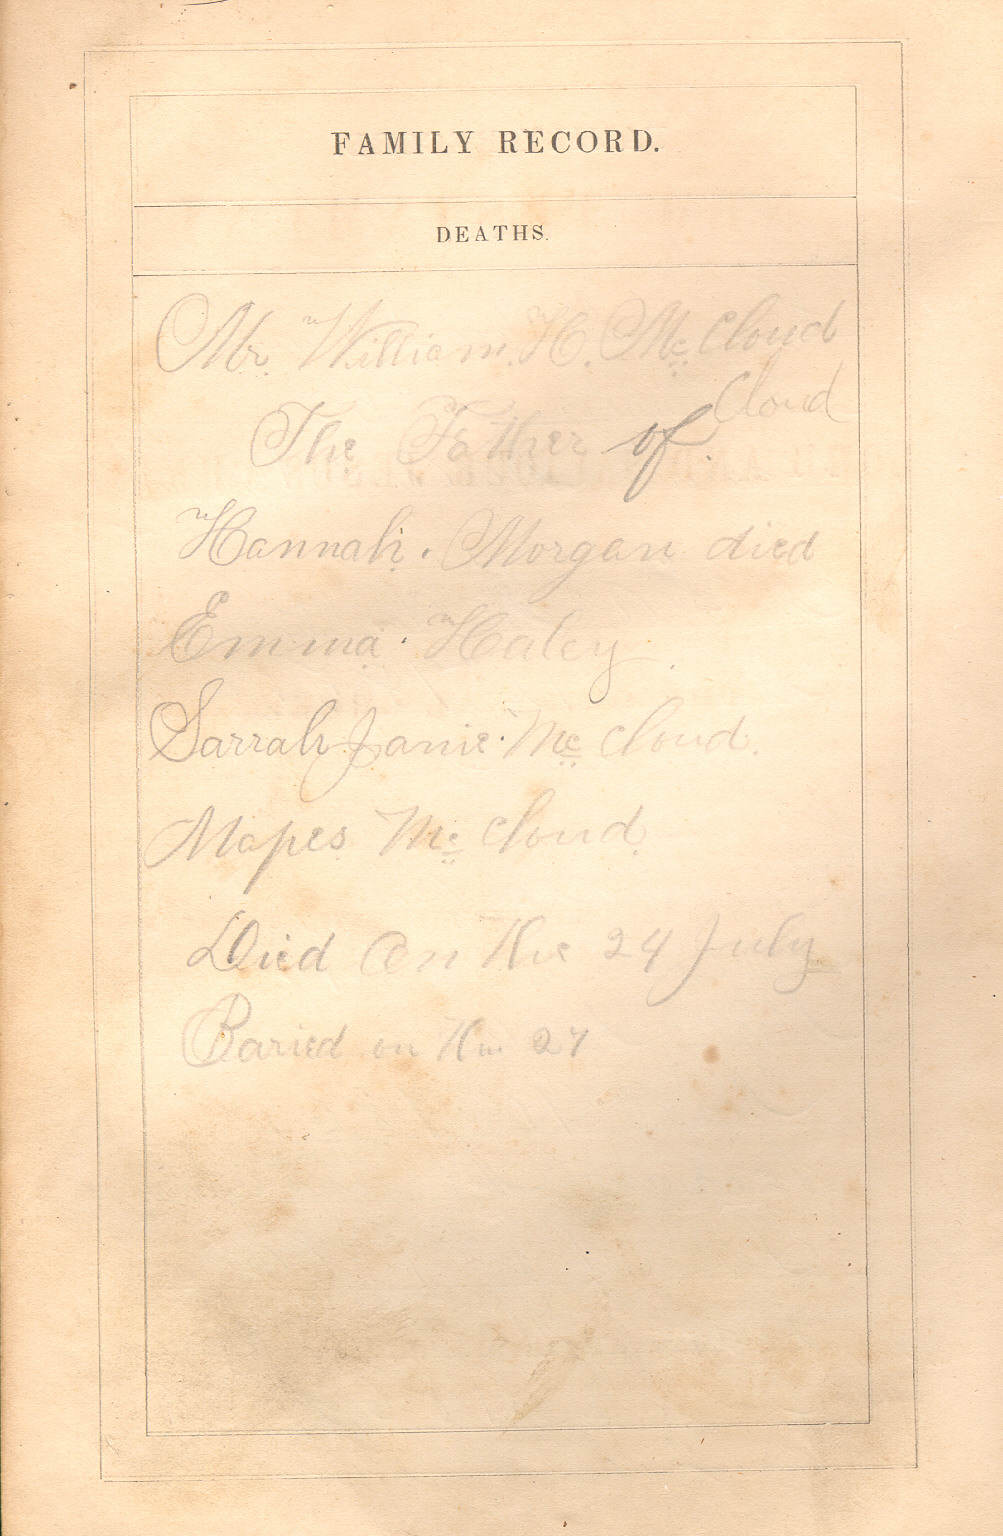 FAMILY RECORD.
DEATHS.
Mr. William. H. Mc Cloud
Cloud
The Father of
Hannah. Morgan died
Emma Haley
Sarrah Janie Mc Cloud.
Mapes Mc Cloud.
Died on the 24 July
Baried on the 27